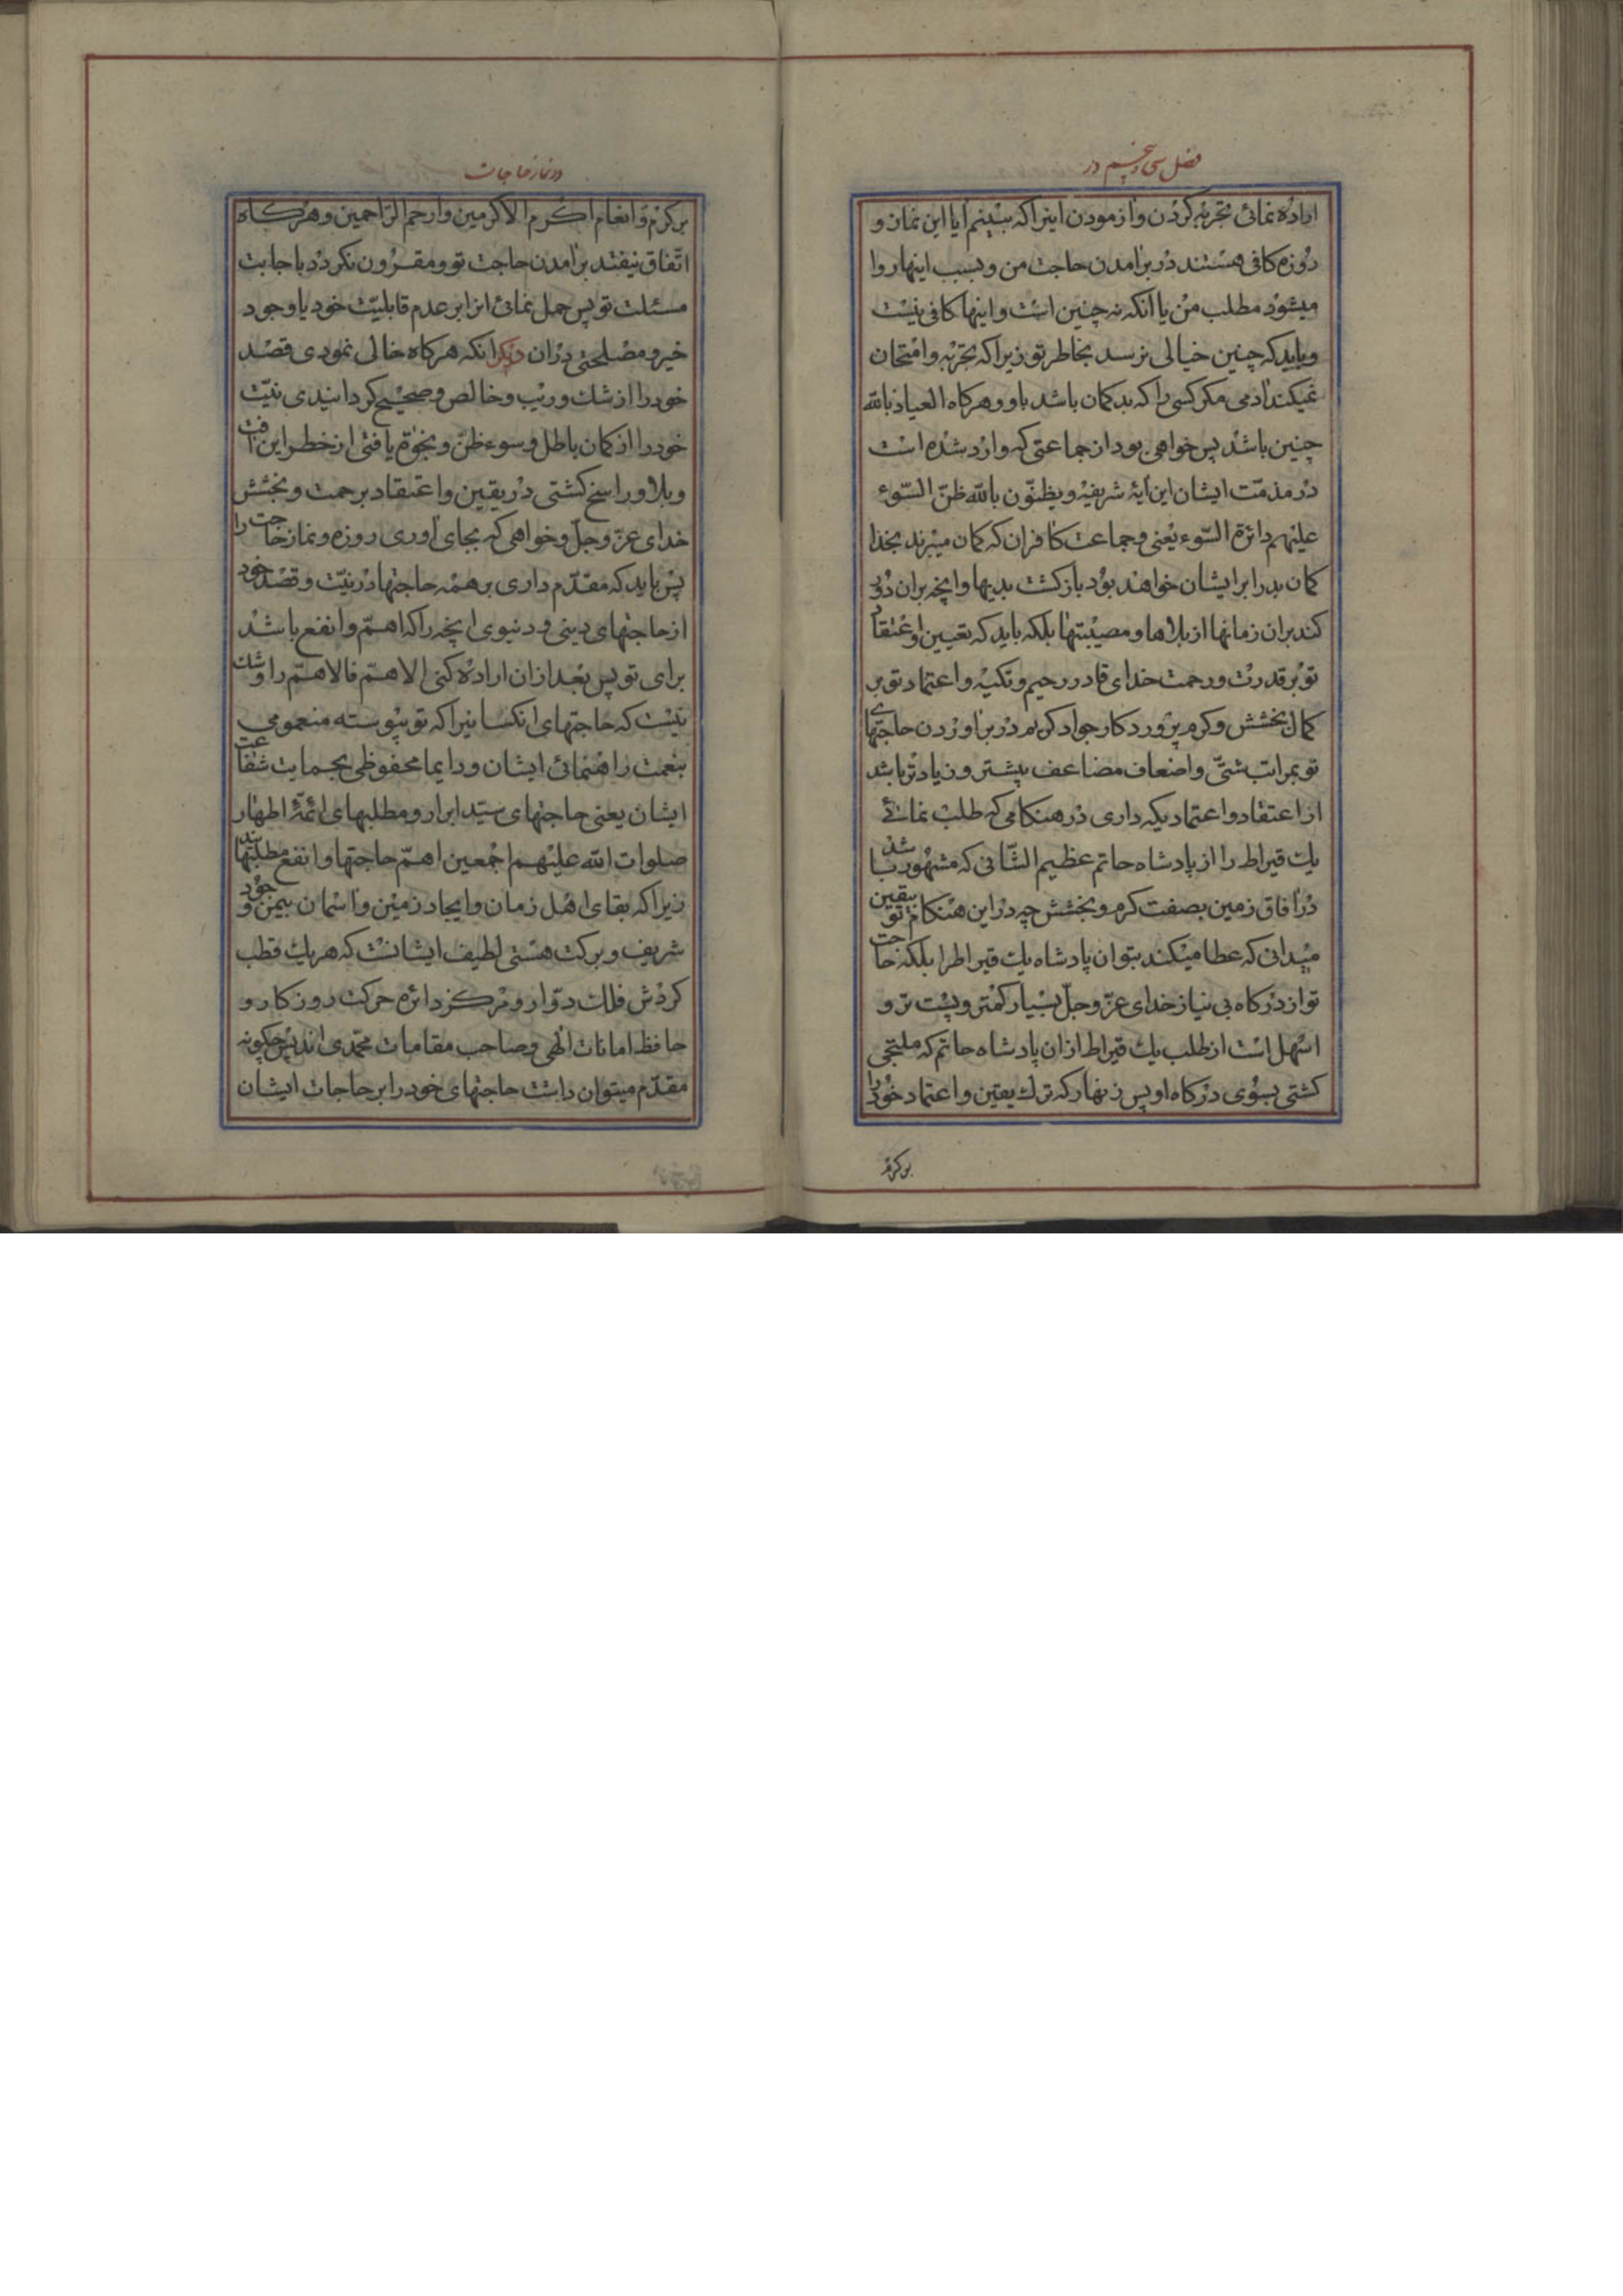 فصل سی و پنجم در
اراده نمائی تجربه کردن و ازمودن اینرا که ببینم ایا این نماز و
روزه کافی هستند در برامدن حاجت من و بسبب اینها روا
میشود مطلب من یا انکه نه چنین است و اینها کافی نیست
و باید که چنین خیالی نرسد بخاطر تو زیرا که تجربه و امتحان
نمیکند ادمی مکر کسی را که بد کمان باشد باو و هرکاه العیاذ بالله
چنین باشد پس خواهی بود از جماعتی که وارد شده است
در مذمّت ایشان این ایهٔ شریفه و یظنّون بالله ظنّ السّوء
علیهم دائرة السّوء یعنی و جماعت کافران که کمان میبرند بخدا
کمان بد را بر ایشان خواهند بود بازکشت بدیها و انچه بران دور
کند بران زمانها از بلاها و مصیبتها بلکه باید که یقین و اعتقاد
تو بر قدرت و رحمت خدای قادر رحیم و تکیه و اعتماد تو بر
کمال بخشش و کرم پروردکار جواد کریم در براوردن حاجتهای
تو بمراتب شتّی و اضعاف مضاعف بیشتر و زیادتر باشد
از اعتقاد و اعتمادیکه داری در هنکامی که طلب نمائے
یك قیراط را از پادشاه حاتم عظیم الشّانی که مشهور باشد
در افاق زمین بصفت کرم و بخشش چه در این هنکام تو بیقین
میدانی که عطا میکند بتو ان پادشاه یك قیراط را بلکه حاجت
تو از درکاه بی نیاز خدای عزّ و جلّ بسیار کمتر و پست تر و
اسهل است از طلب یك قیراط از ان پادشاه حاتم که ملتجی
کشتی بسوی درکاه او پس زنهار که ترك یقین و اعتماد خود را
بر کرم
در نماز حاجات
بر کرم و انعام اکرم الاکرمین و ارحم الرّاحمین و هرکاه
اتّفاق نیفتد برامدن حاجت تو و مقرون نکردد باجابت
مسئلت تو پس حمل نمائی انرا بر عدم قابلیّت خود یا وجود
خیر و مصلحتی دران دیکر انکه هرکاه خالی نمودی قصد
خود را از شك و ریب و خالص و صحیح کردانیدی نیّت
خود را از کمان باطل و سوء ظنّ و نجوة یافتی از خطر این افت
و بلا و راسخ کشتی در یقین و اعتقاد برحمت و بخشش
خدای عزّ و جلّ و خواهی که بجای اوری روزه و نماز حاجت را
پس باید که مقدّم داری بر همه حاجتها در نیّت و قصد خود
از حاجتهای دینی و دنیوی انچه را که اهمّ و انفع باشد
برای تو پس بعد ازان اراده کنی الاهمّ فالاهمّ را و شك
نیست که حاجتهای انکسانیرا که تو پیوسته منعمومی
بنعمت راهنمائی ایشان و دایما محفوظی بحمایت شفاعت
ایشان یعنی حاجتهای سیّد ابرار و مطلبهای ائمّهٔ اطهار
صلوات الله علیهم اجمعین اهمّ حاجتها و انفع مطلبها
زیرا که بقای اهل زمان و ایجاد زمین و اسمان بیمن وجود
شریف و برکت هستی لطیف ایشانست که هر یك قطب
کردش فلك دوّار و مرکز دائره حرکت روزکار و
حافظ امانات الهی و صاحب مقامات محمّدی اند پس چکونه
مقدّم میتوان داشت حاجتهای خود را بر حاجات ایشان